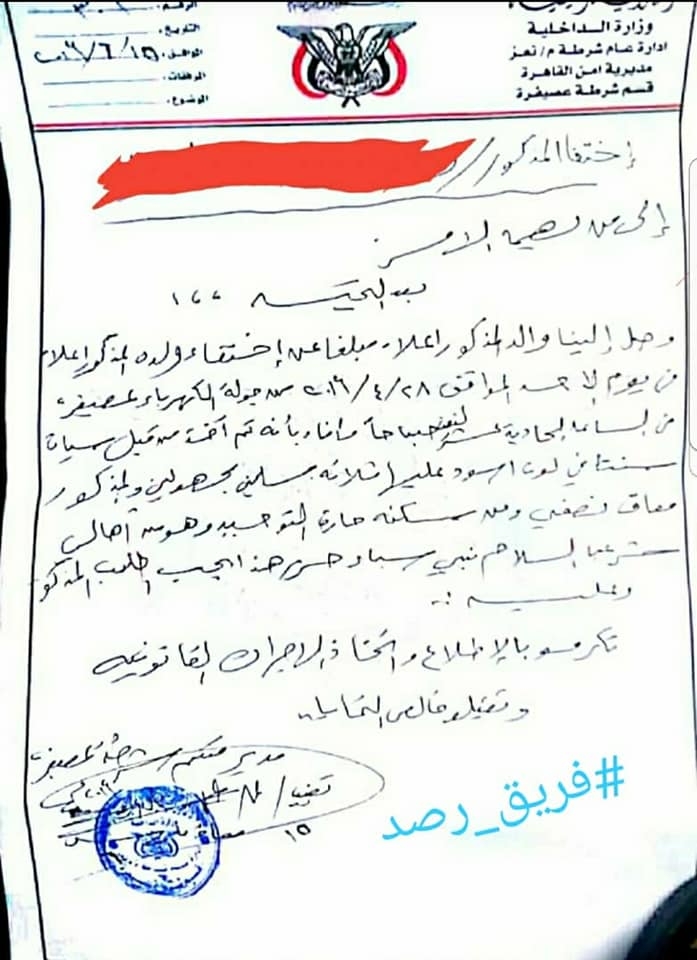 وزارة الداخلية
ادارة عام شرطة م/تعز
مديرية امن القاهرة
قسم شرطة عصيفرة
الرقم:
التاريخ:
الموافق: ٢٠١٦/٦/١٥
المرفقات:
الموضوع:
إختفا المذكور/
إلى من يهمه الامر
بعد التحية ،،،
وصل إلينا والد المذكور اعلاه مبلغا عن إختفاء ولده المذكور اعلاه
في يوم الاحد الموافق ٢٠١٦/٤/٢٨ من جولة الكهرباء عصيفرة
من الساعة الحادية عشر صباحاً وافاد بأنه تم أخذه من قبل سيارة
سنتافي لون اسود عليها ثلاثه مسلحين مجهولين والمذكور
معاق نصفي ومن سكنه حارة التوحيد وهو من أهالي
شرعب السلام بني سبأ حسن هذا بحسب طلب المذكور
وعليه :.
تكرموا بالإطلاع واتخاذ الاجراءات القانونيه
وتقبلوا خالص التحايا..
مدير قسم شرطة عصيفرة
١٥
#فريق_رصد